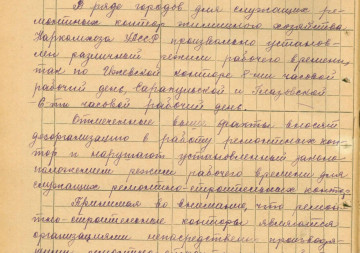 В ряде городов для служащих ре-
монтных контор жилищного хозяйства
Наркомхоза УАССР произвольно установ-
лен различный режим рабочего времени,
так по Ижевской конторе 8-ми часовой
рабочий день, Сарапульской и Глазовской
6-ти часовой рабочий день.
Отмеченные выше факты вносят
дезорганизацию в работу ремонтных кон-
тор и нарушают установленный законо-
положением режим рабочего времени для
служащих ремонтно-строительных контор.
Принимая во внимание, что ремон-
тно-строительные конторы являются
организациями непосредственно производя-